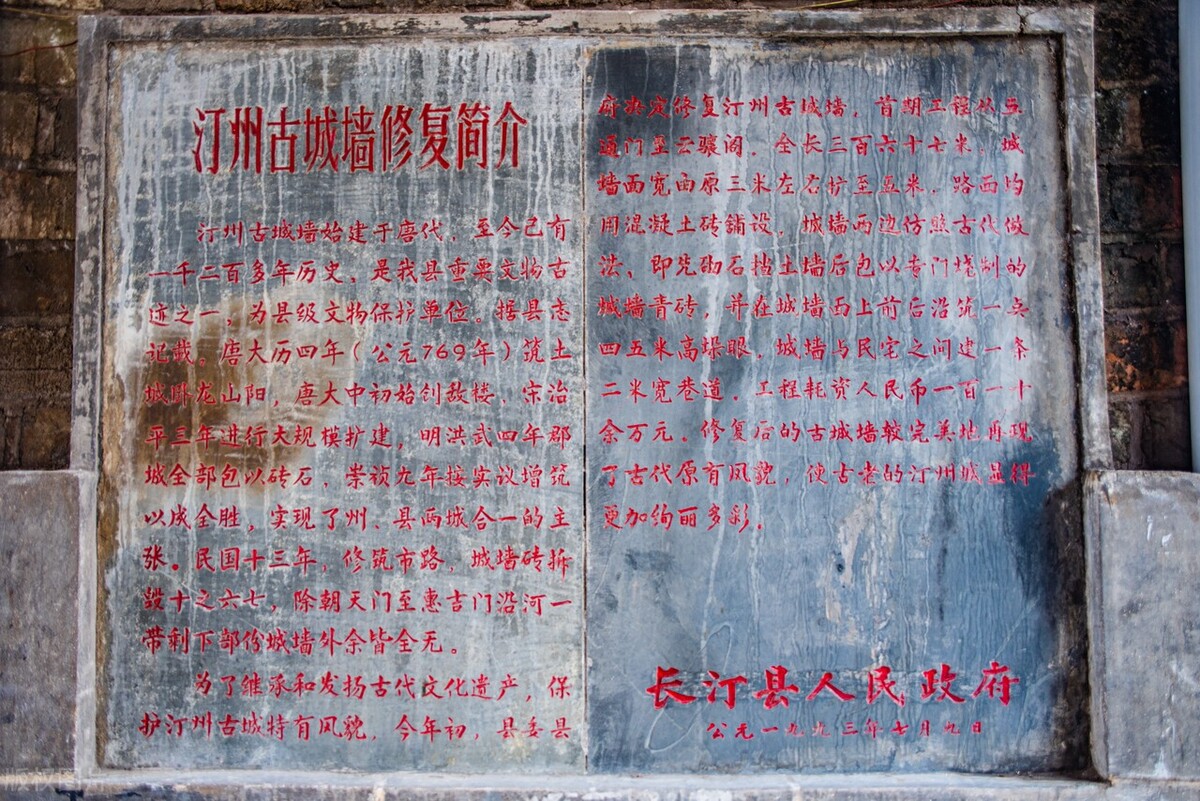 汀州古城墙修复简介
汀州古城墙始建于唐代，至今已有
一千二百多年历史，是我县重要文物古
迹之一，为县级文物保护单位。据县志
记载，唐大历四年（公元769年）筑土
城卧龙山阳，唐大中初始创敌楼，宋治
平三年进行大规模扩建，明洪武四年郡
城全部包以砖石，崇祯九年接实议增筑
以成全胜，实现了州、县两城合一的主
张。民国十三年，修筑市路，城墙砖拆
毁十之六七，除朝天门至惠吉门沿河一
带剩下部份城墙外余皆全无。
为了继承和发扬古代文化遗产，保
护汀州古城特有风貌，今年初，县委县
府决定修复汀州古城墙，首期工程从五
通门至云骧阁，全长三百六十七米，城
墙面宽由原三米左右扩至五米，路面均
用混凝土砖铺设，城墙两边仿照古代做
法，即先砌石挡土墙后包以专门烧制的
城墙青砖，并在城墙面上前后沿筑一点
四五米高垛眼，城墙与民宅之间建一条
二米宽巷道。工程耗资人民币一百一十
余万元。修复后的古城墙较完美地再现
了古代原有风貌，使古老的汀州城显得
更加绚丽多彩。
长汀县人民政府
公元一九九三年七月九日